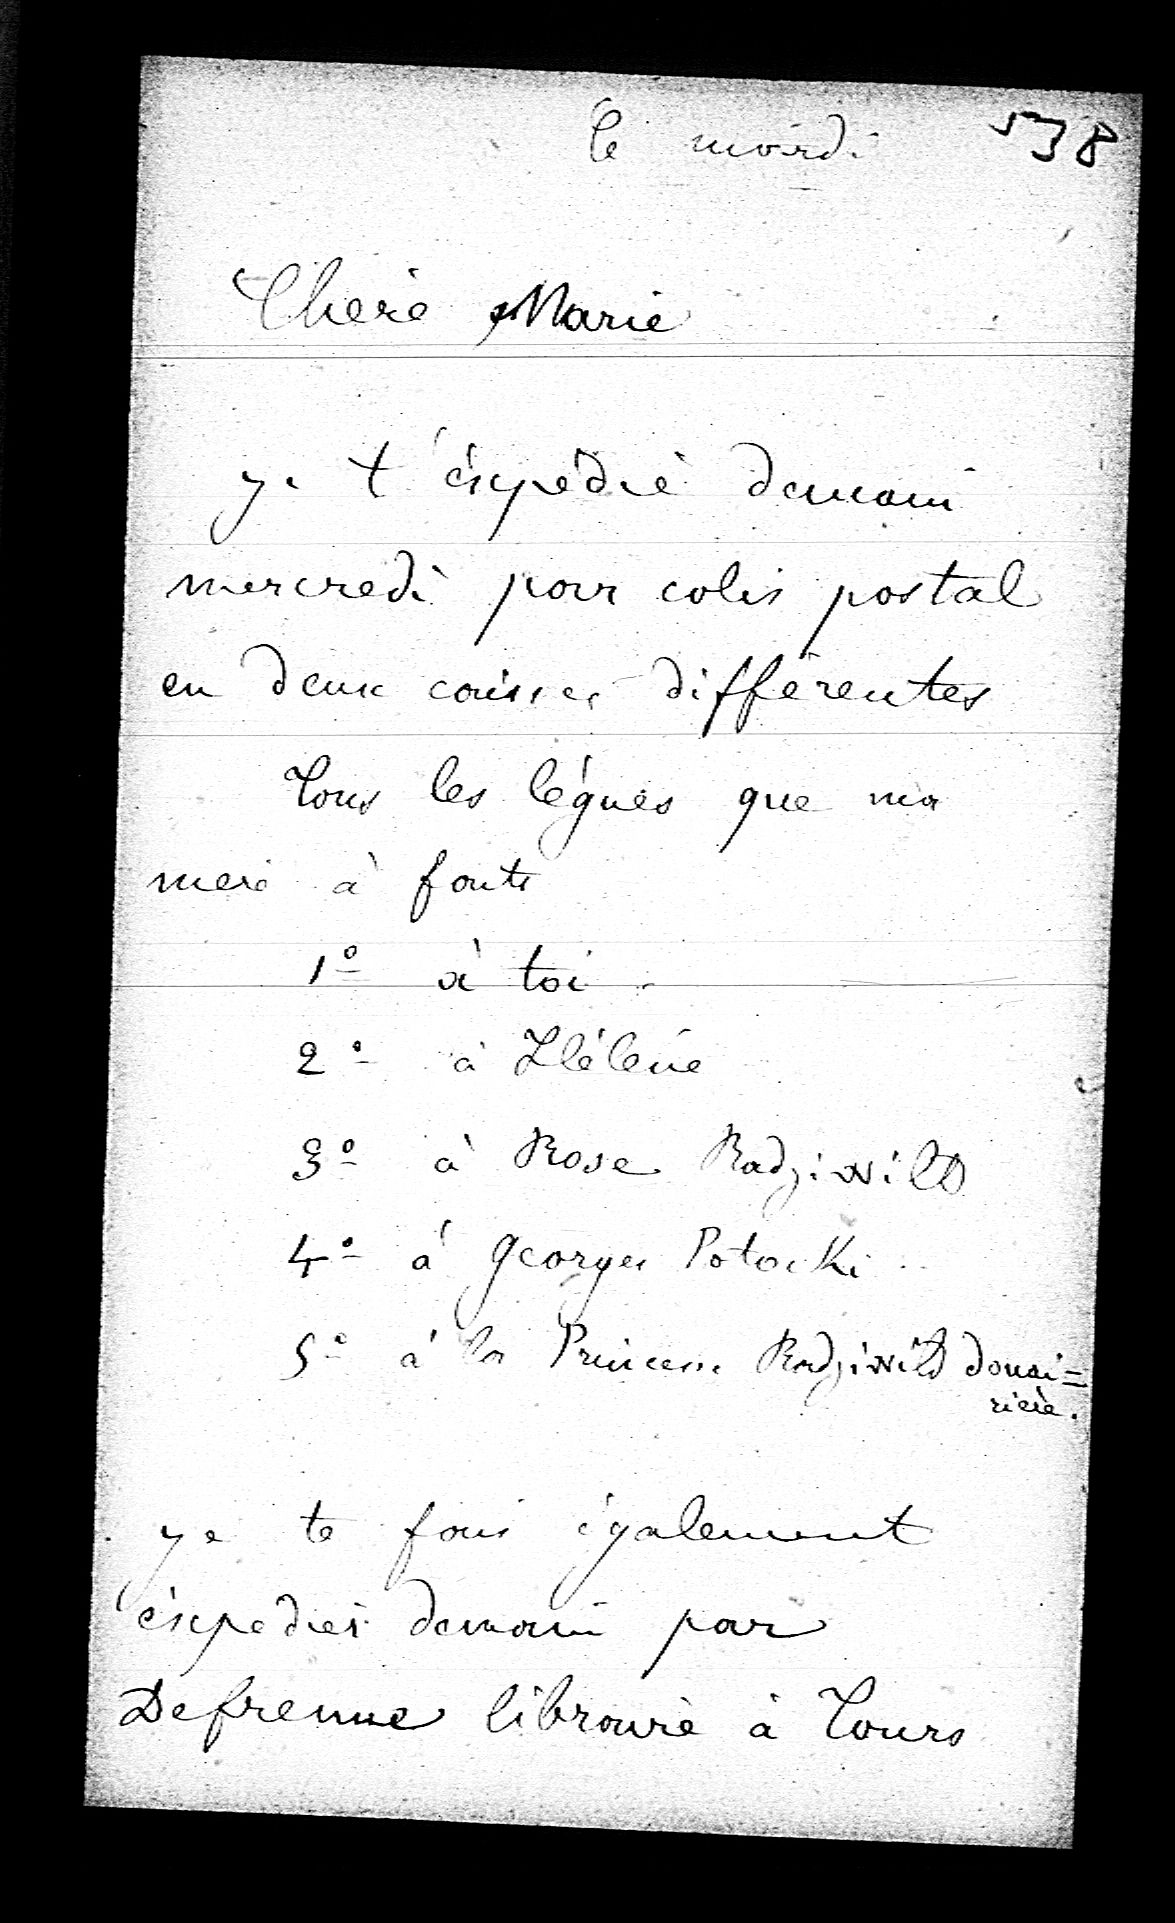 le mardi 538
Chere Marie
je t'éxpédie demain
mercredi par colis postal
en deux caisses différentes
Tous les légues que ma
mere à faits
1º à toi
2º à Hélène
3º à Rose Radziwill
4º à Georges Potocki
5º à la Princesse Radziwill douai=
rière.
je te fais également
éxpedier demain par
Defrenne libraire à Tours